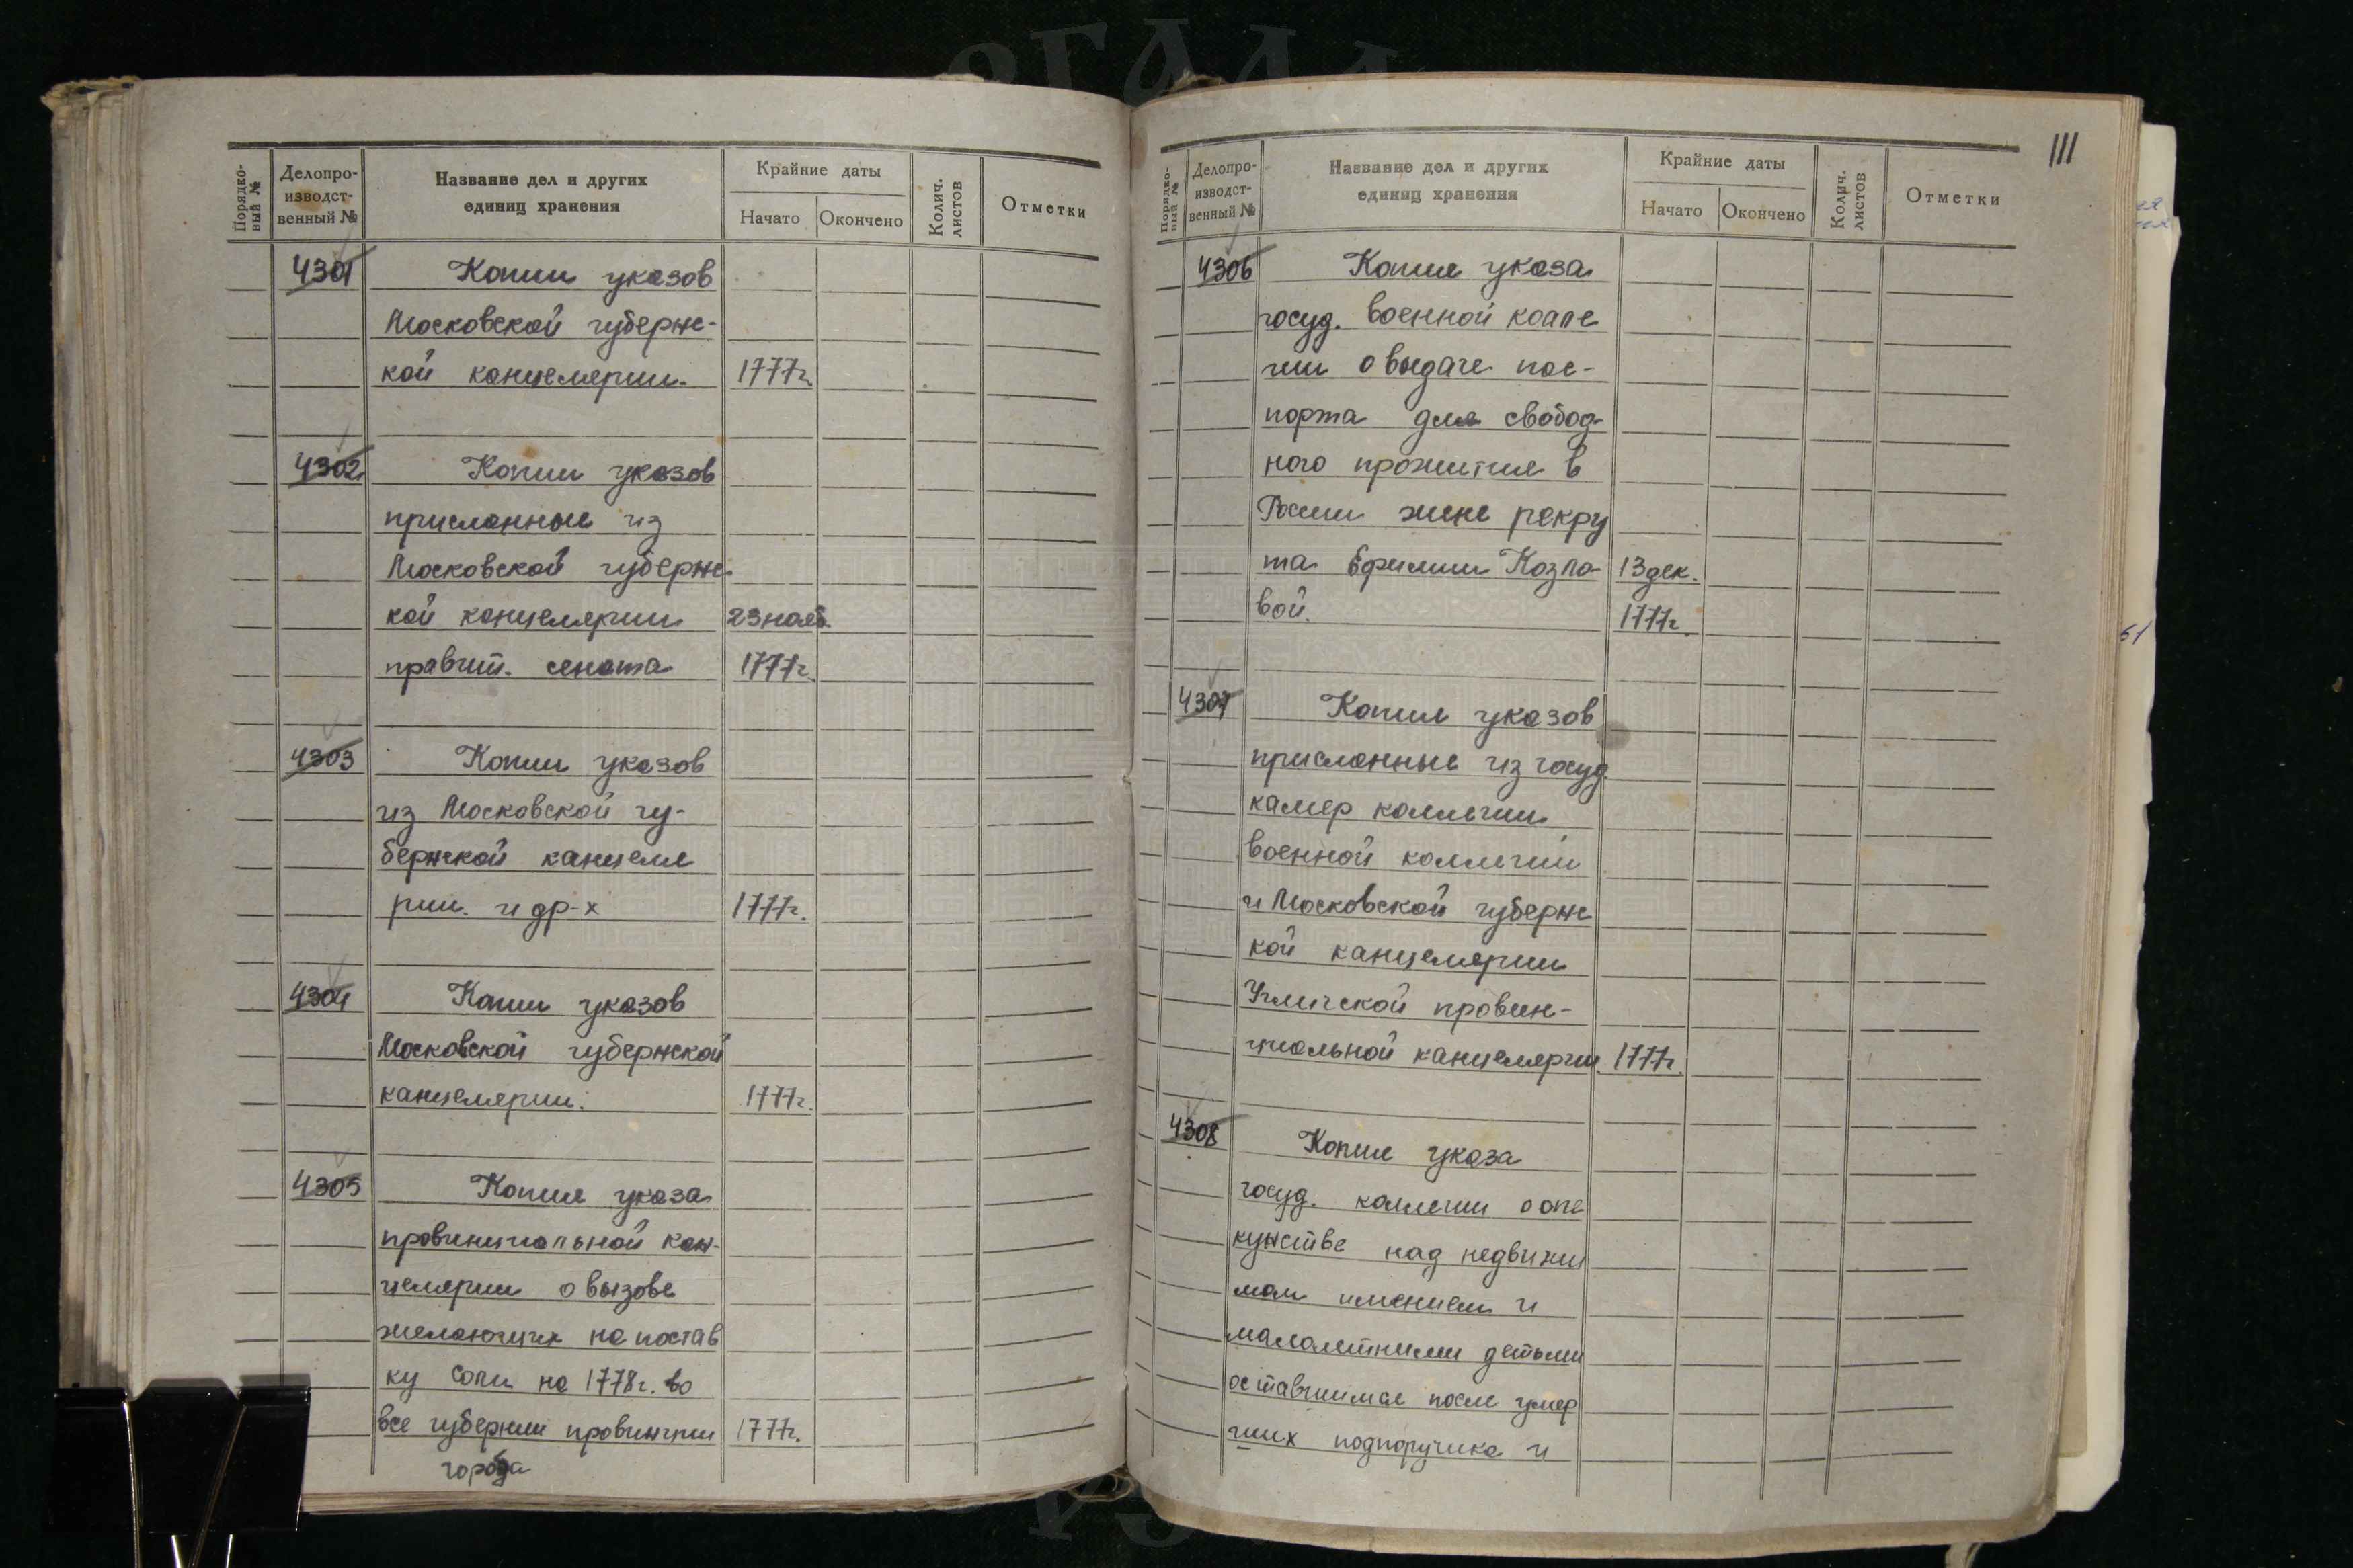 Порядко-
вый №
Делопро-
изводст-
венный №
Название дел и других
единиц хранения
Крайние даты
Начато
Окончено
Колич.
листов
Отметки
4301
Копии указов
Московской губернс-
кой канцелярии. 1777г.
4302
Копии указов
присланные из
Московской губернс-
кой канцелярии 23 нояб.
правит. сената 1777г.
4303
Копии указов
из Московской гу-
бернской канцеля
рии. и др-х 1777г.
4304
Копии указов
Московской губернской
канцелярии. 1777г.
4305
Копия указа
провинциальной кан-
целярии о вызове
желающих на постав
ку соли на 1778г. во
все губернии провинции 1777г.
города
111
Порядко-
вый №
Делопро-
изводст-
венный №
Название дел и других
единиц хранения
Крайние даты
Начато
Окончено
Колич.
листов
Отметки
4306
Копия указа
госуд. военной колле
гии о выдаче пас-
порта для свобод-
ного прожития в
России жене рекру
та Ефимии Козло 13 дек.
вой. 1777г.
4307
Копии указов
присланные из госуд.
камер коллегии
военной коллегии
и Московской губернс
кой канцелярии
Угличской провин-
циальной канцелярии. 1777г.
4308
Копия указа
госуд. коллегии о опе
кунстве над недвижи
мом имением и
малолетними детьми
оставшимся после умер
ших подпоручика и
51